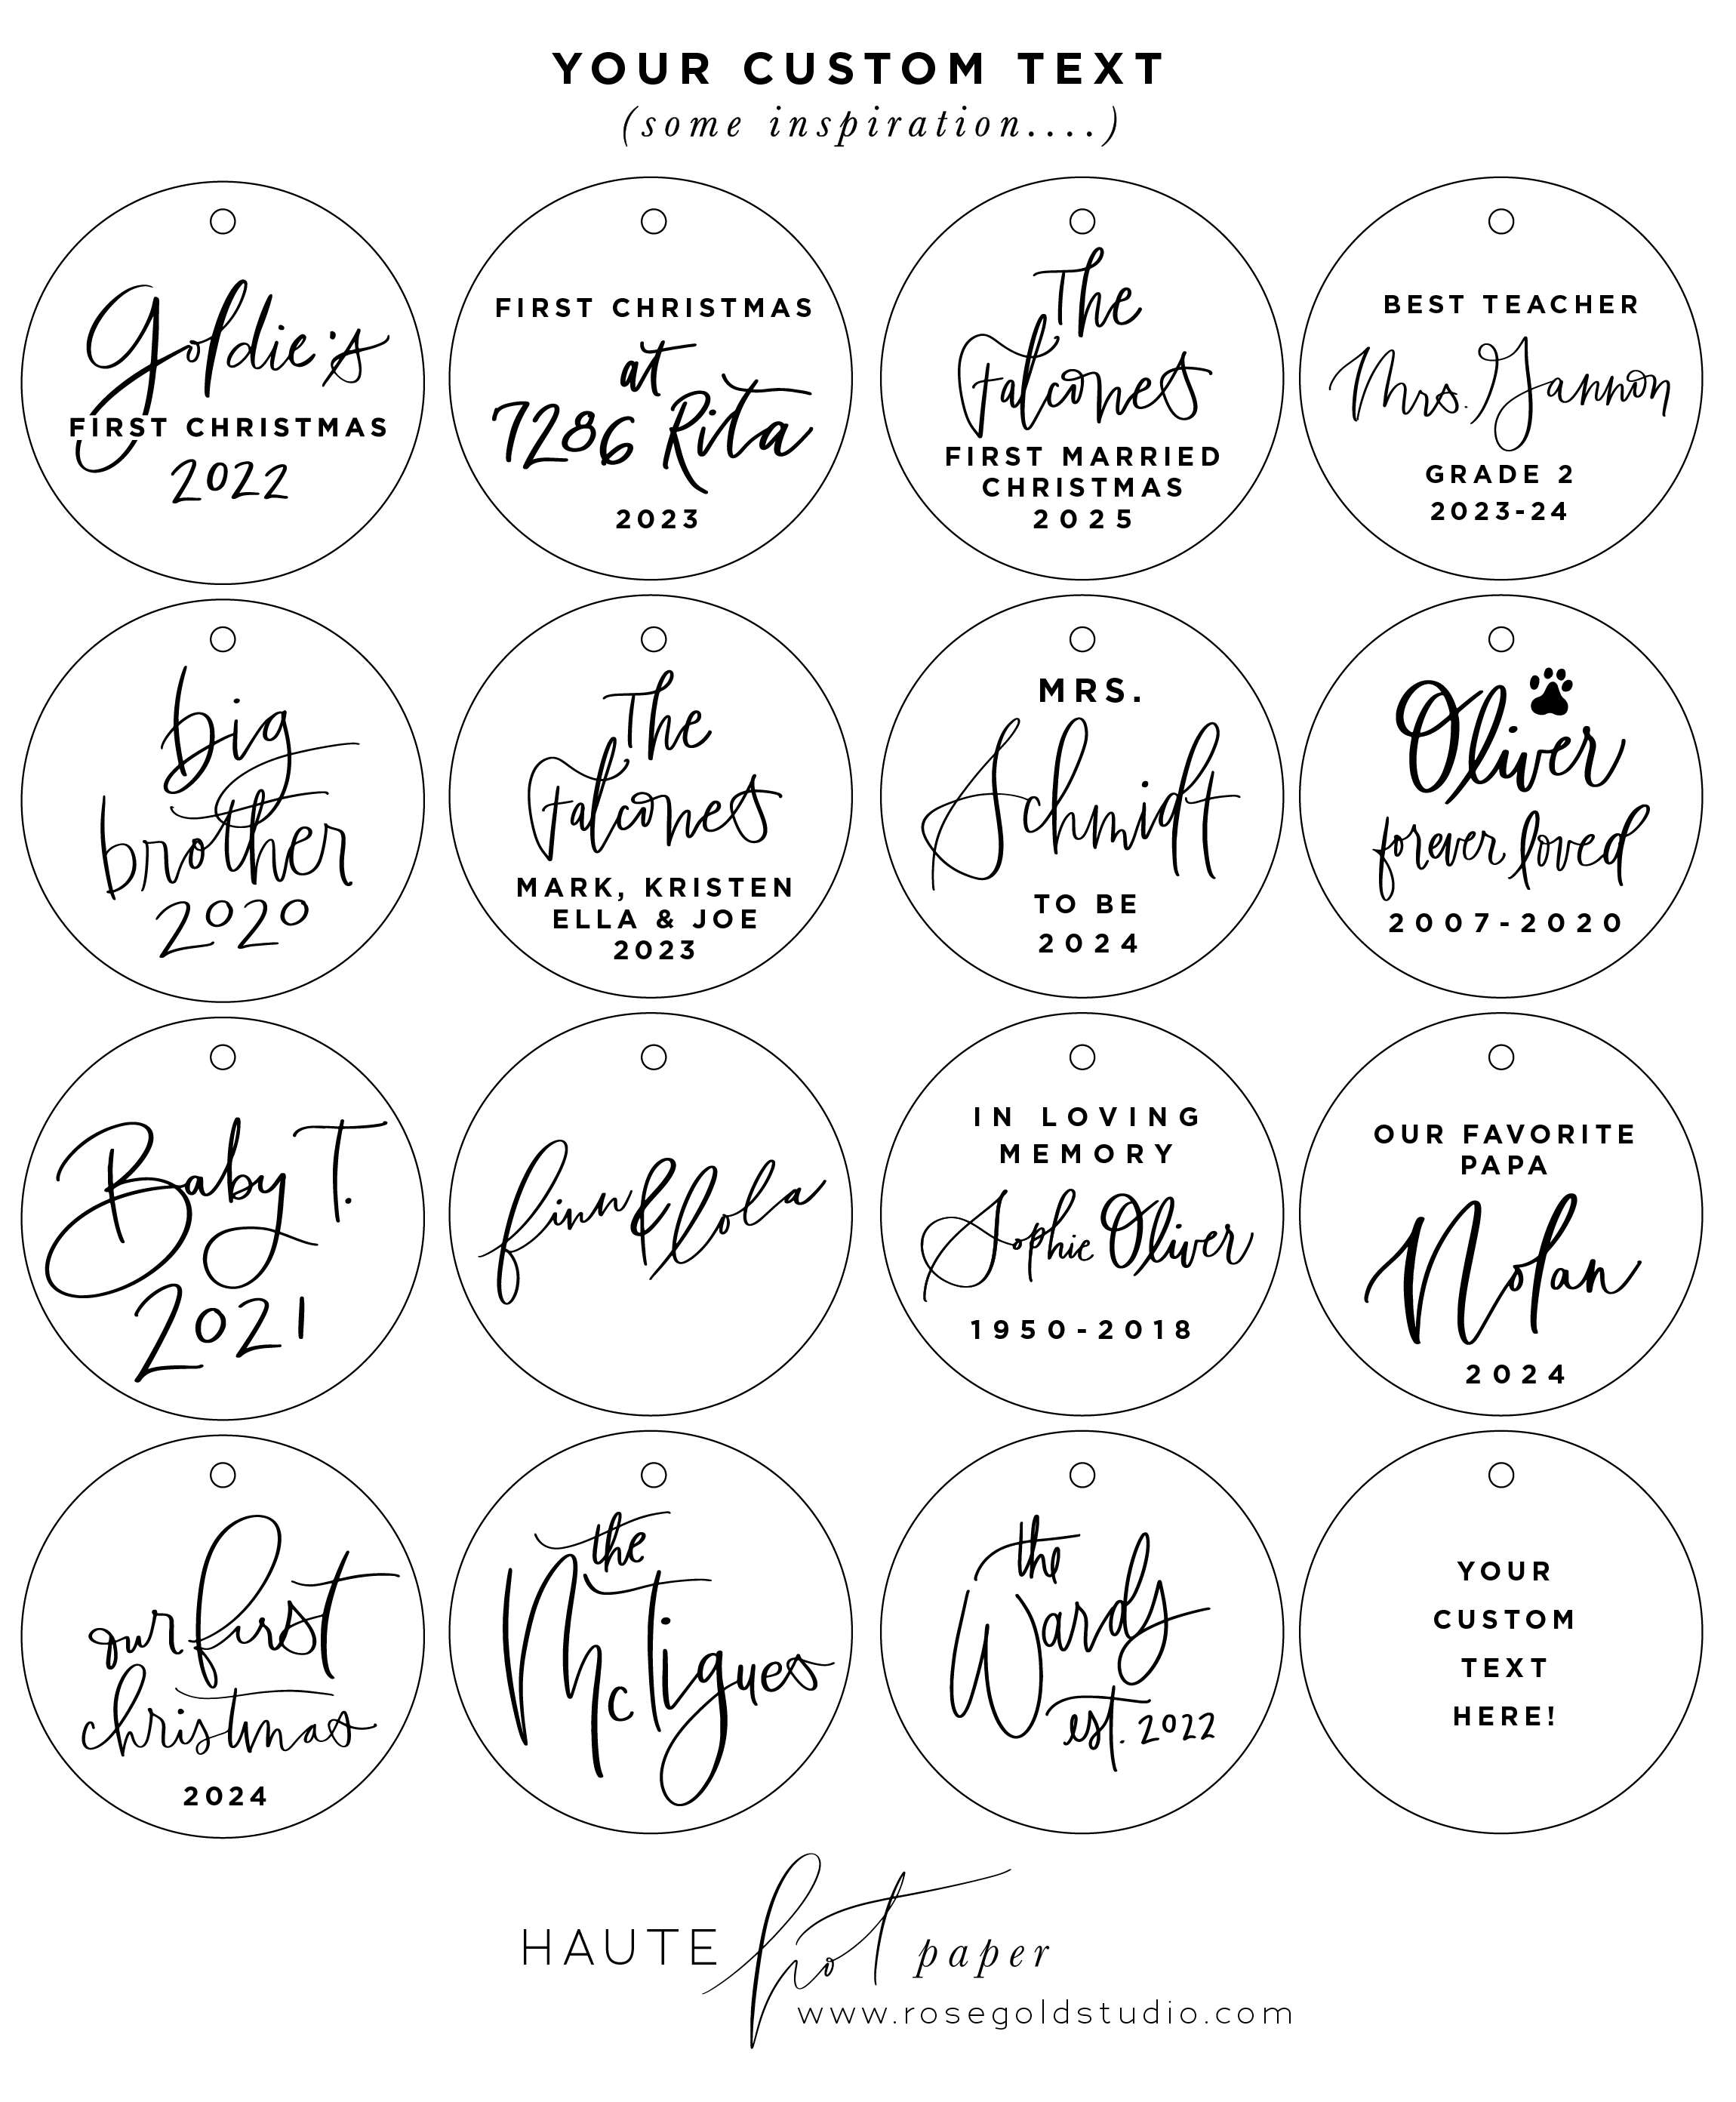 YOUR CUSTOM TEXT
(some inspiration....)
Goldie's
FIRST CHRISTMAS
2022
FIRST CHRISTMAS
at
7286 Rita
2023
The
Falcones
FIRST MARRIED
CHRISTMAS
2025
BEST TEACHER
Mrs. Gannon
GRADE 2
2023-24
big
brother
2020
The
Falcones
MARK, KRISTEN
ELLA & JOE
2023
MRS.
Schmidt
TO BE
2024
Oliver
forever loved
2007-2020
Baby T.
2021
finn & lola
IN LOVING
MEMORY
Sophie Oliver
1950-2018
OUR FAVORITE
PAPA
Nolan
2024
our first
christmas
2024
the
McTigues
the
Wards
est. 2022
YOUR
CUSTOM
TEXT
HERE!
HAUTE hot paper
www.rosegoldstudio.com